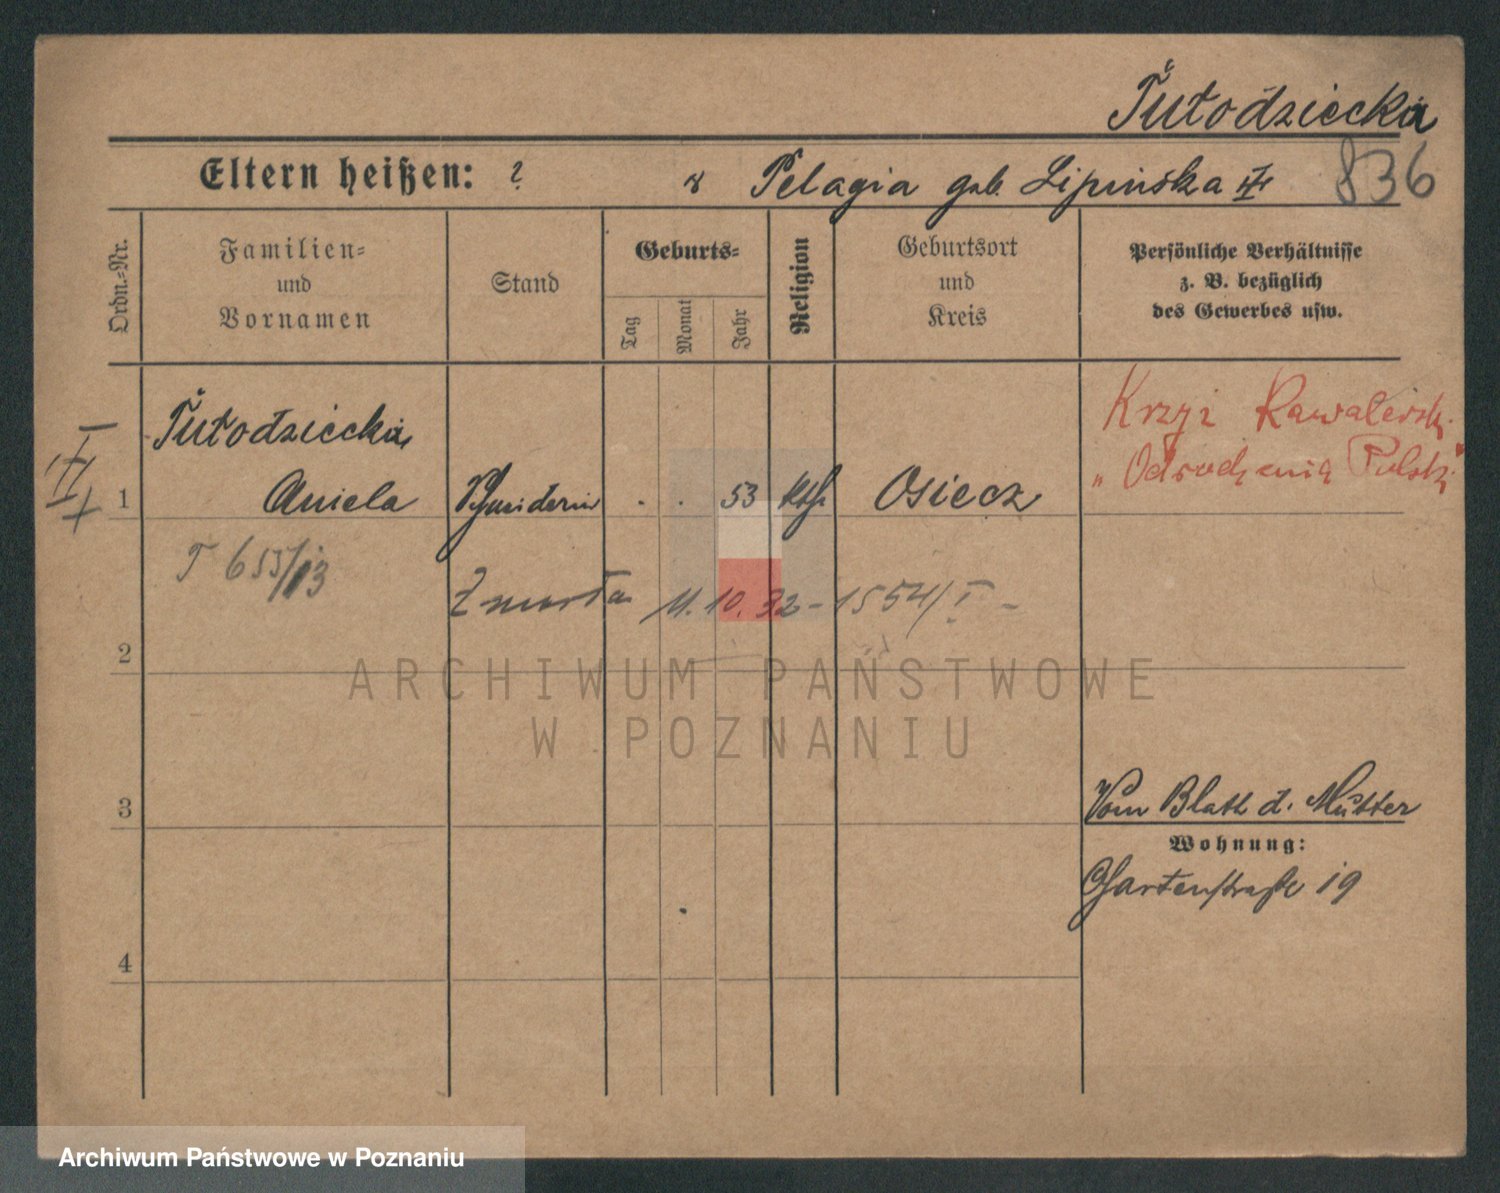 Tułodziecka
Eltern heißen: ? & Pelagia geb. Lipińska
836
Ordn.-Nr.
Familien-
und
Vornamen
Stand
Geburts-
Tag
Monat
Jahr
Religion
Geburtsort
und
Kreis
Persönliche Verhältnisse
z. B. bezüglich
des Gewerbes usw.
Tułodziecka
1 Aniela . . 53 kth. Osiecz
Krzyż Kawalerski
"Odrodzenia Polski"
T 653/13
Zmarła 11.10.32 - 1554/I -
2
ARCHIWUM PAŃSTWOWE
W POZNANIU
3
Vom Blatt d. Mutter
Wohnung:
Gartenstraße 19
4
Archiwum Państwowe w Poznaniu